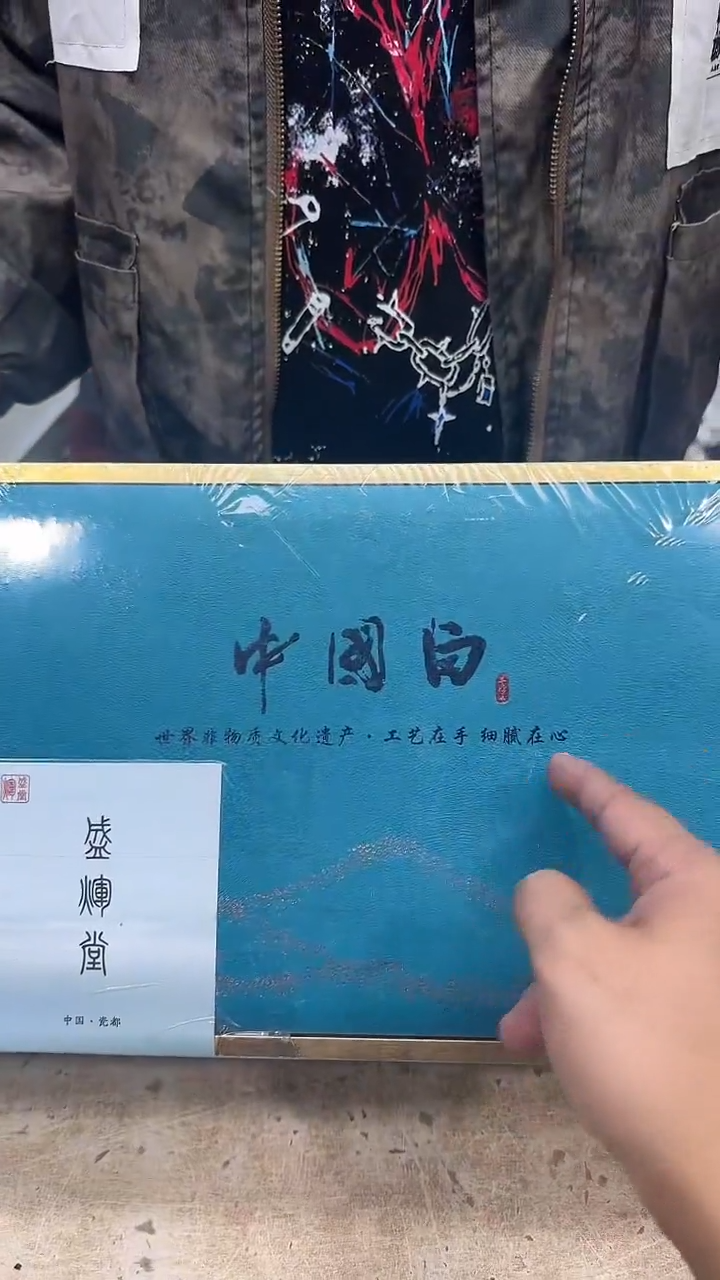 中國白
世界非物质文化遗产·工艺在手 细腻在心
盛輝堂
中国·瓷都